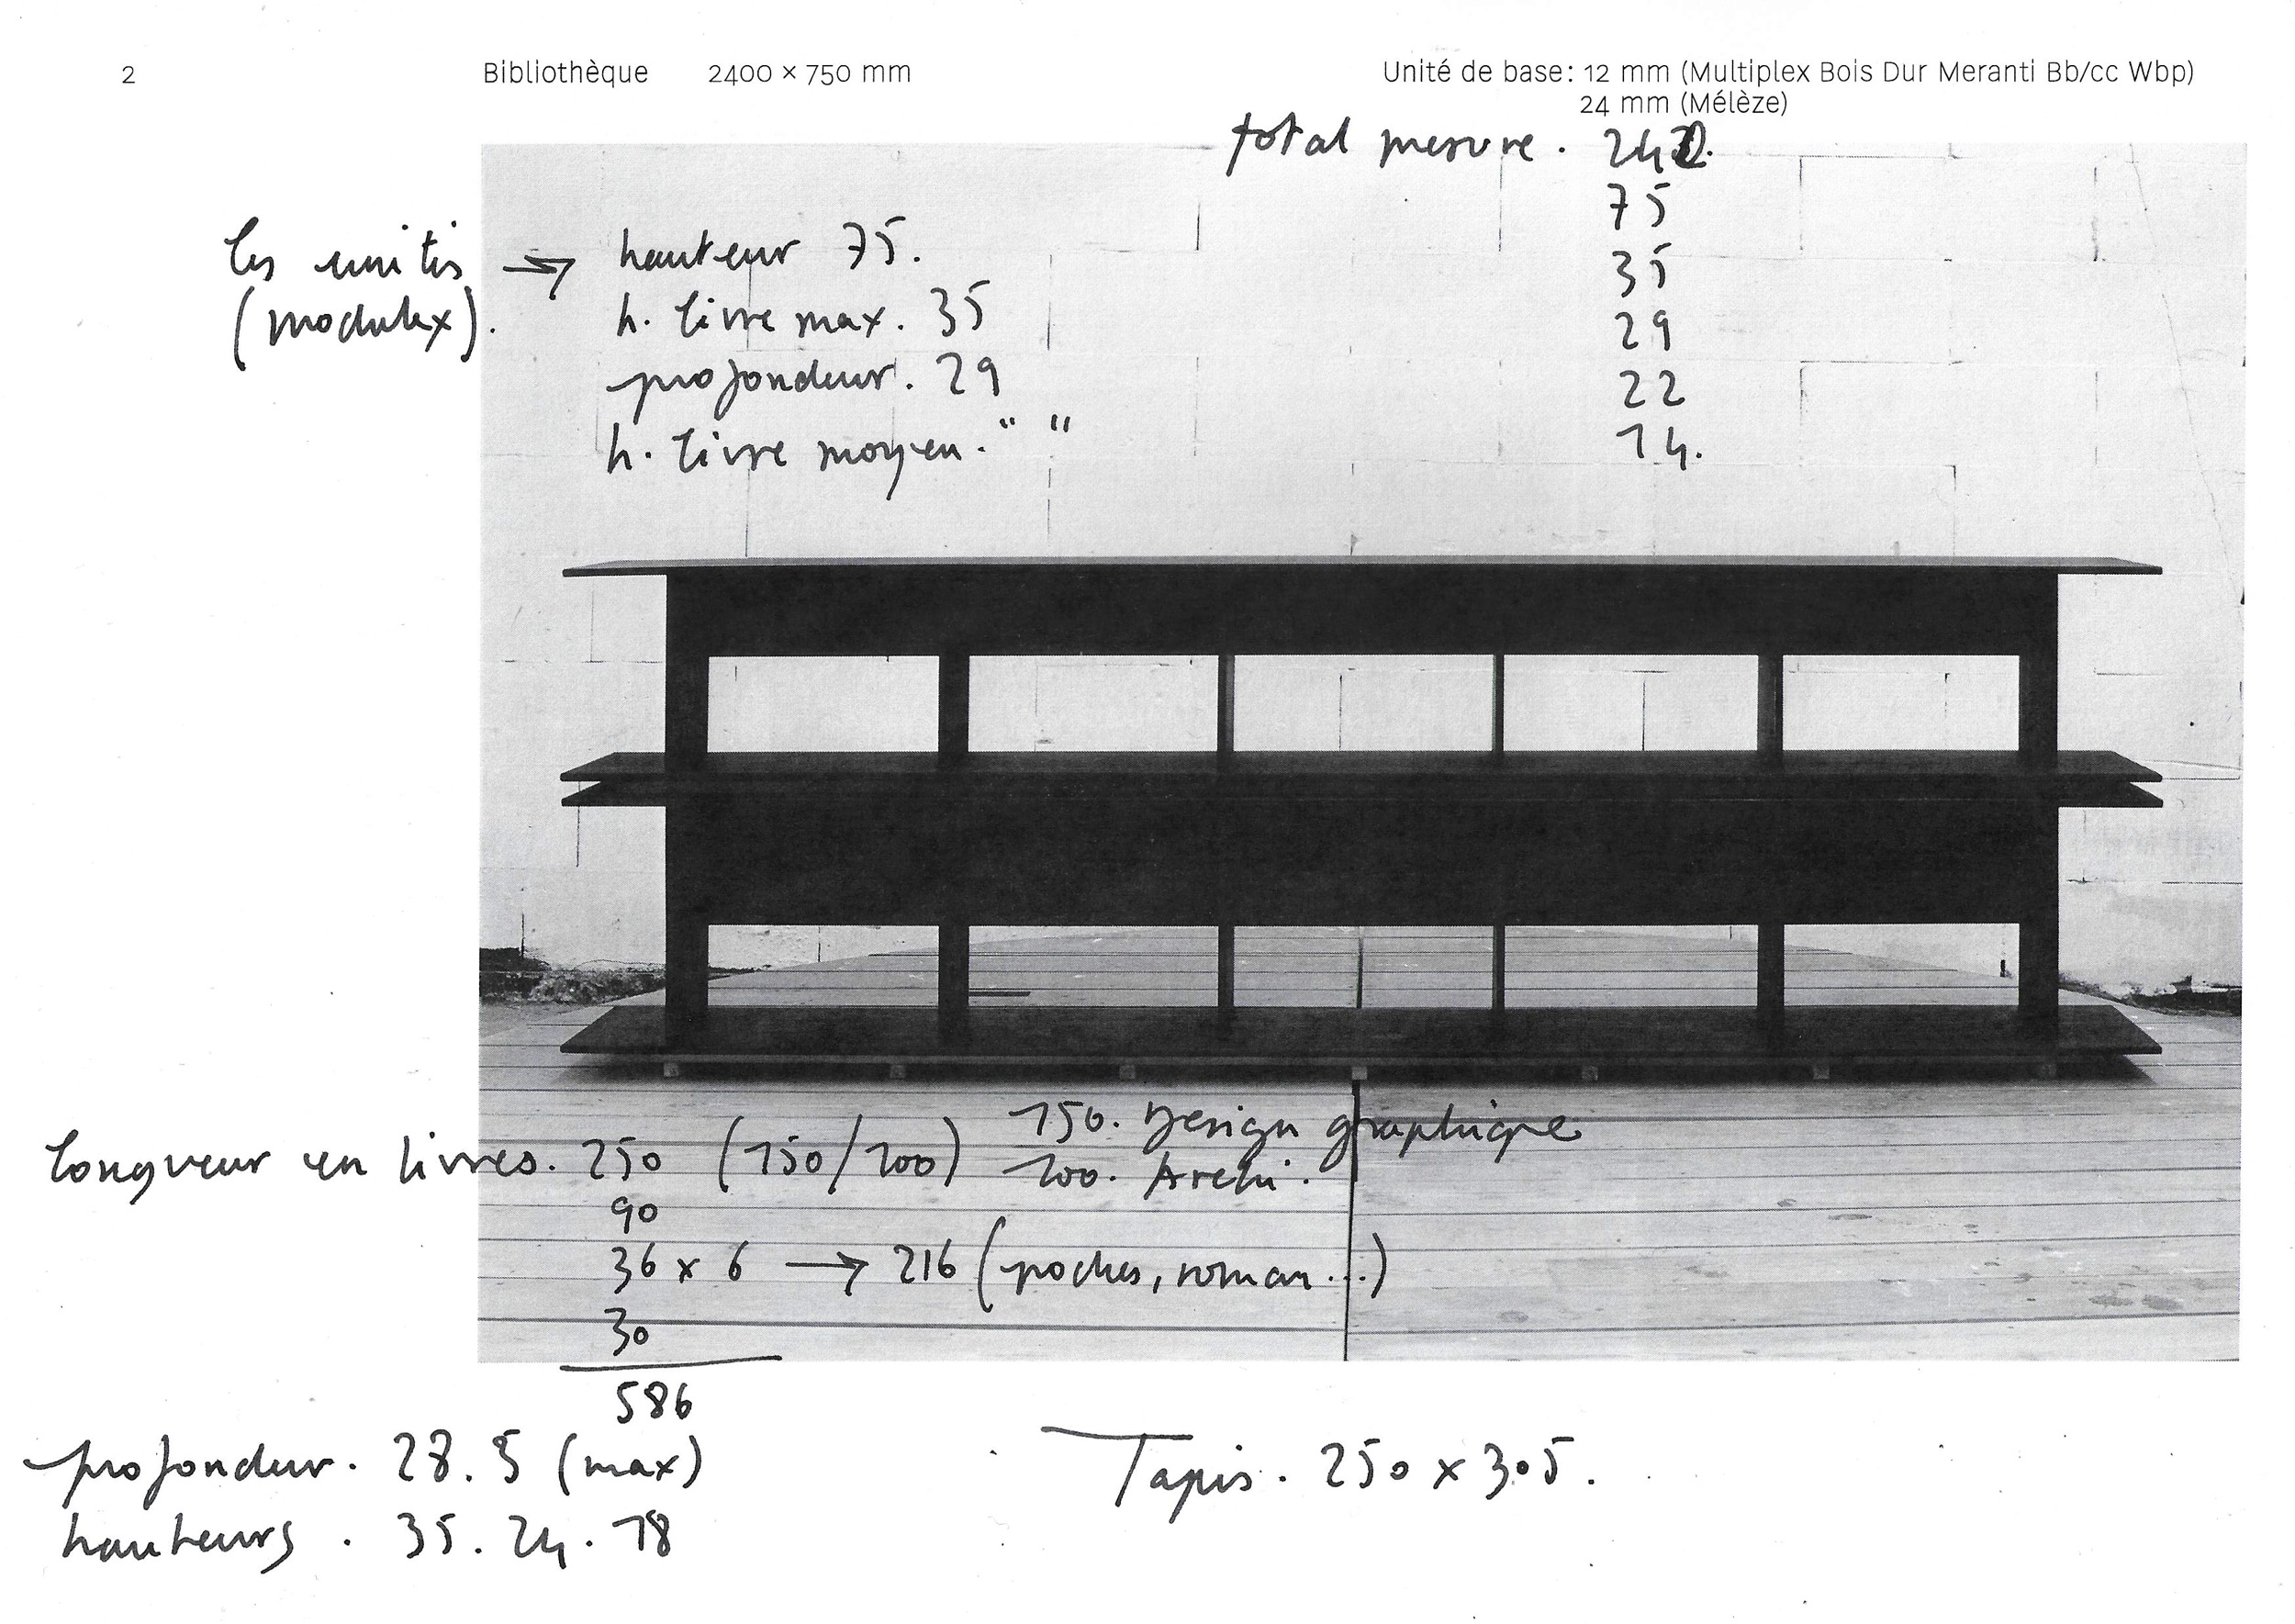 2
Bibliothèque 2400 × 750 mm
Unité de base: 12 mm (Multiplex Bois Dur Meranti Bb/cc Wbp)
24 mm (Mélèze)
total mesure. 242.
75
35
29
22
14.
les unités → hauteur 75.
(modulex). h. livre max. 35
profondeur. 29
h. livre moyen. " "
longueur en livres. 250 (150/100) 150. Design graphique
100. Archi.
90
36 x 6 → 216 (poches, roman...)
30
586
profondeur. 28.5 (max)
hauteurs. 35. 24. 18
Tapis. 250 x 305.